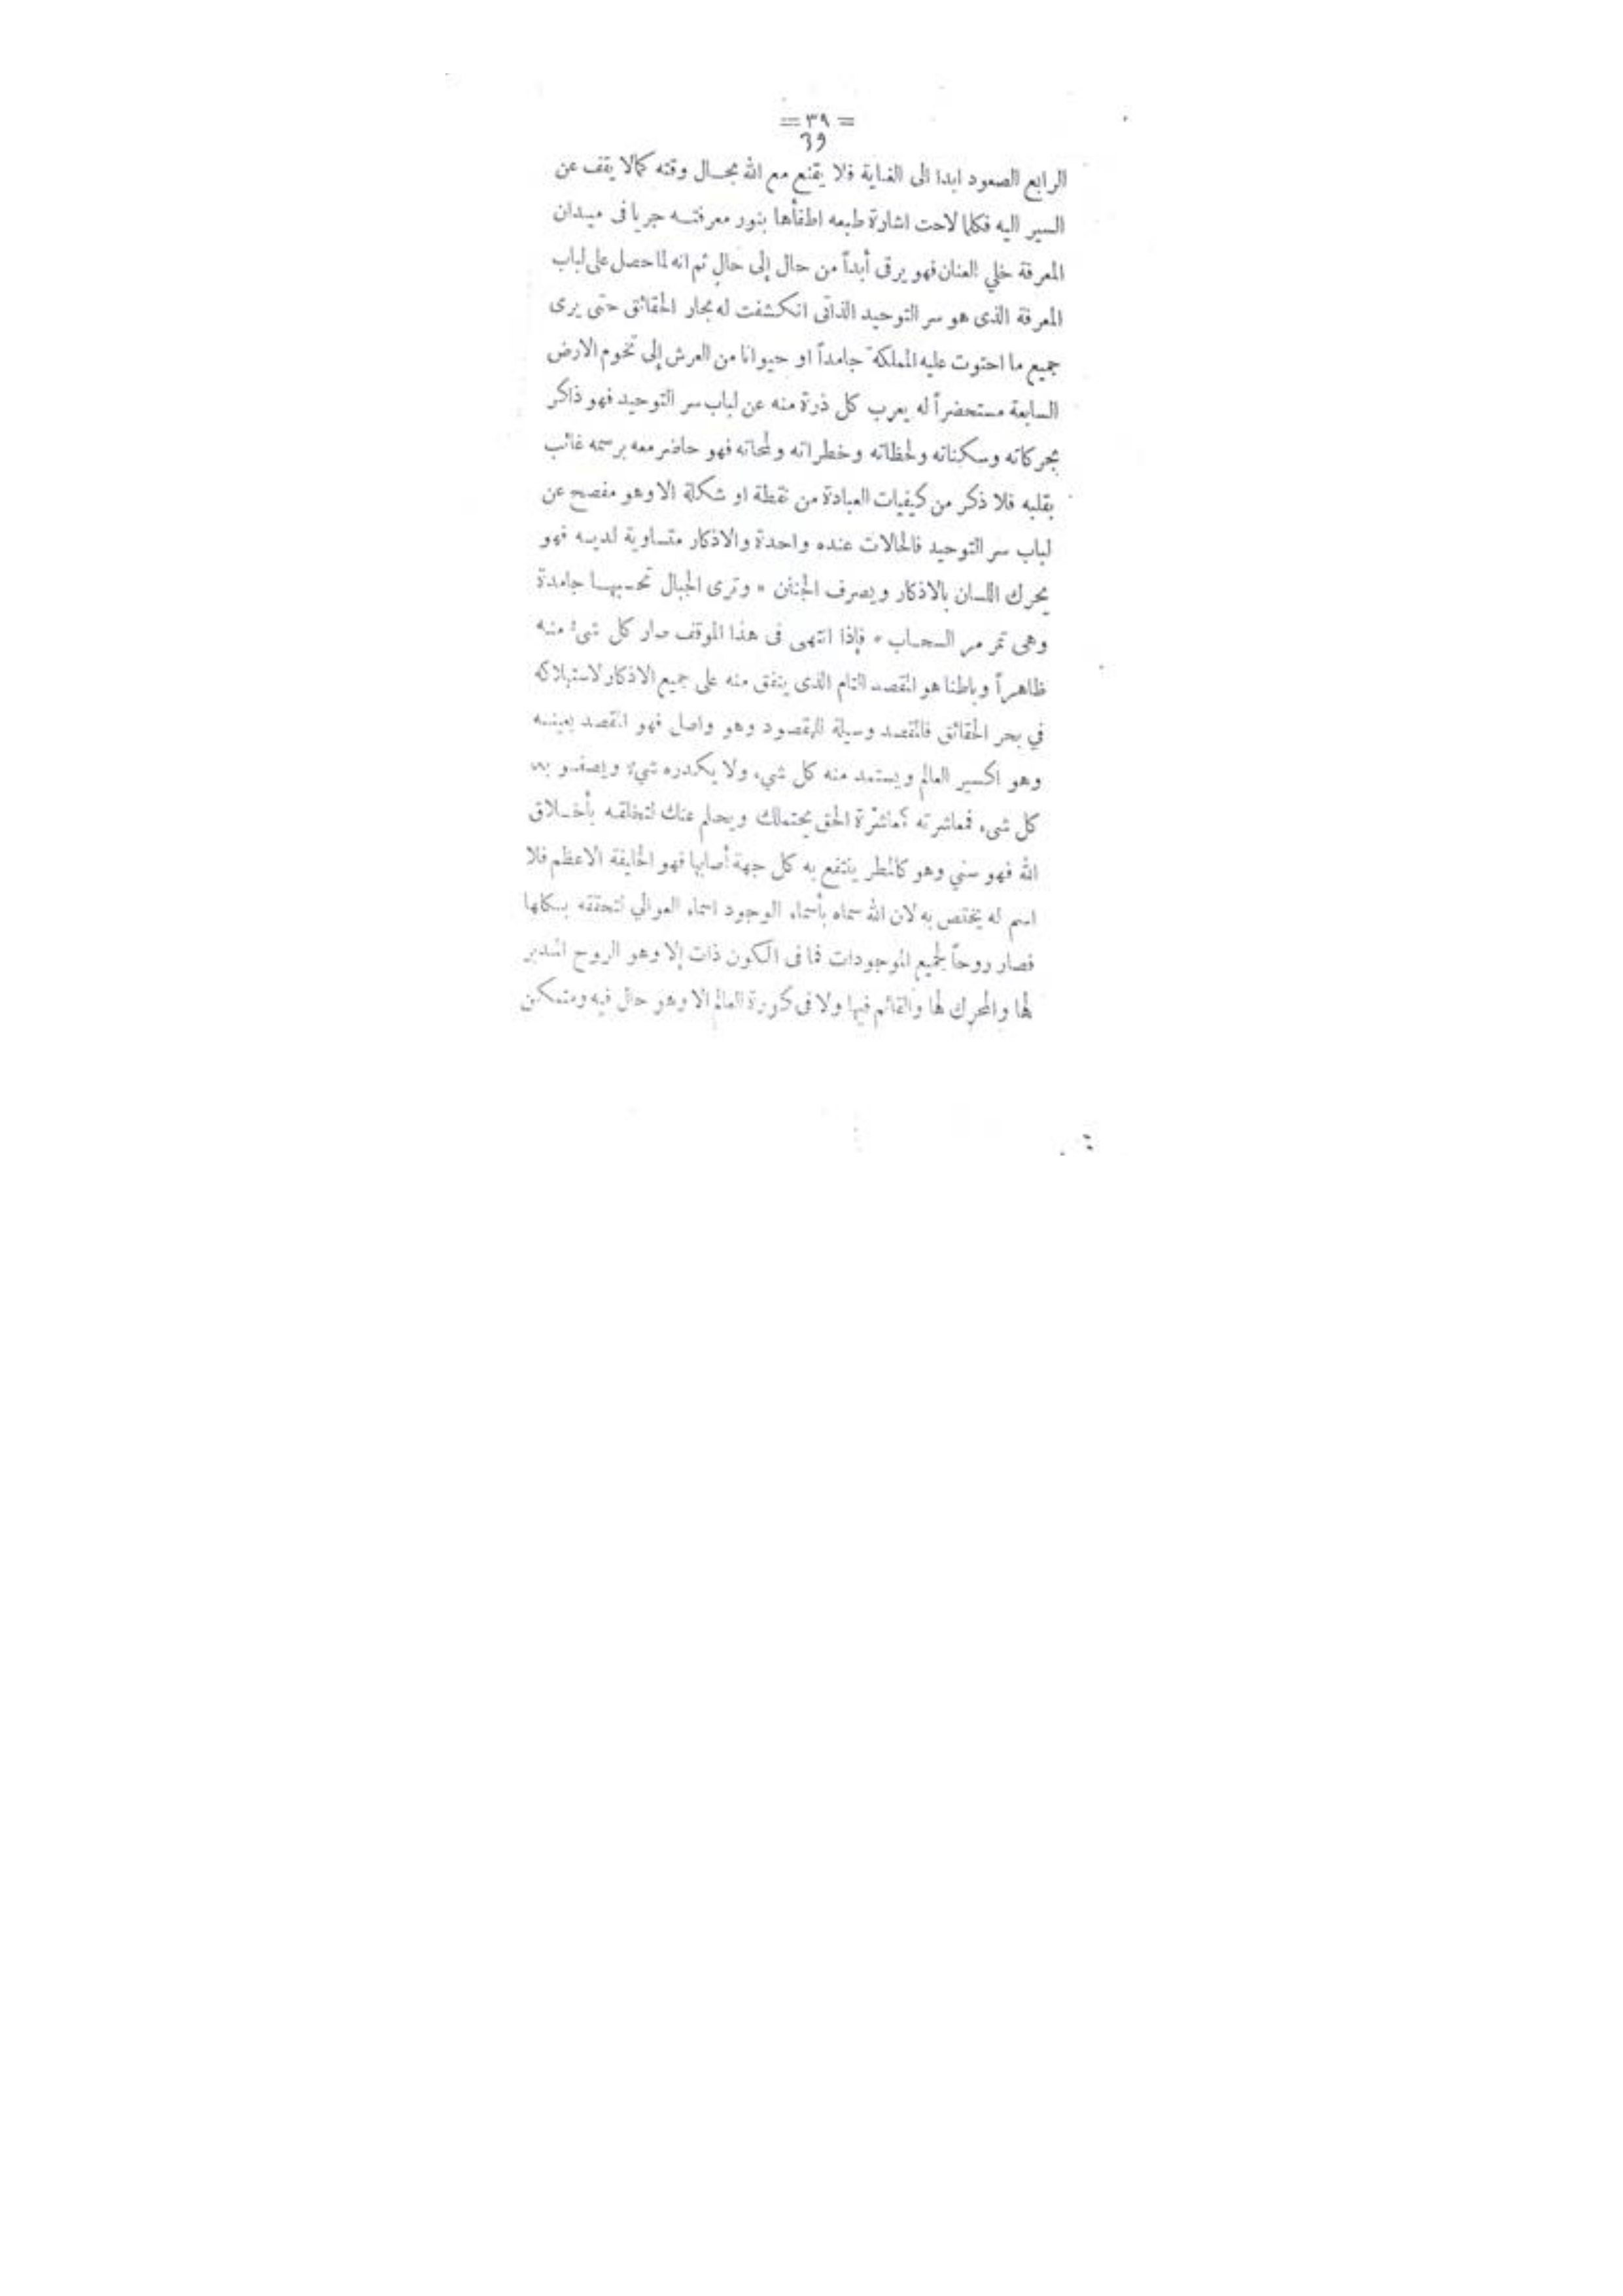 = ٣٩ =
39
الرابع الصعود ابدا الى الغاية فلا يقنع مع الله بحال وقته كما لا يقف عن
السير اليه فكلما لاحت اشارة طبعه اطفأها بنور معرفته جريا فى ميدان
المعرفة خلي العنان فهو يرقى أبداً من حال إلى حال ثم انه لما حصل على لباب
المعرفة الذى هو سر التوحيد الذاتى انكشفت له بحار الحقائق حتى يرى
جميع ما احتوت عليه المملكة جامداً او حيوانا من العرش إلى تخوم الارض
السابعة مستحضراً له يعرب كل ذرة منه عن لباب سر التوحيد فهو ذاكر
بحركاته وسكناته ولحظاته وخطراته ولمحاته فهو حاضر معه برسمه غائب
بقلبه فلا ذكر من كيفيات العبادة من نقطة او شكلة الا وهو مفصح عن
لباب سر التوحيد فالحالات عنده واحدة والاذكار متساوية لديه فهو
يحرك اللسان بالاذكار ويصرف الجنان « وترى الجبال تحسبها جامدة
وهى تمر مر السحاب » فإذا انتهى فى هذا الموقف صار كل شىء منه
ظاهراً وباطنا هو المقصد التام الذى ينفق منه على جميع الاذكار لاستهلاكه
في بحر الحقائق فالمقصد وسيلة للمقصود وهو واصل فهو المقصد بعينه
وهو اكسير العالم ويستمد منه كل شيء ولا يكدره شيء ويصفو به
كل شىء فمعاشرته كمعاشرة الحق يحتملك ويحلم عنك لتخلقه بأخلاق
الله فهو سني وهو كالمطر ينتفع به كل جهة أصابها فهو الخليفة الاعظم فلا
اسم له يختص به لان الله سماه بأسماء الوجود اسماء العوالي لتحققه بكلها
فصار روحاً لجميع الموجودات فما فى الكون ذات إلا وهو الروح المدبر
لها والمحرك لها والقائم فيها ولا فى كورة العالم الا وهو حال فيه ومتمكن